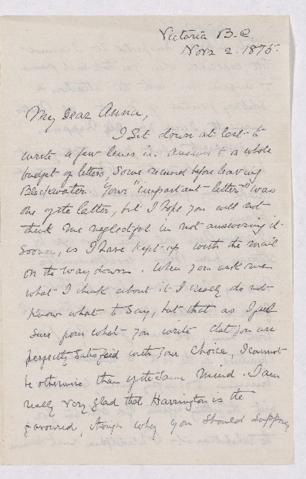 Victoria B.C
Novr 2. 1875.
My dear Anna,
I sit down at last to
write a few lines in answer to a whole
budget of letters, some received before leaving
Blackwater. Your "important letter" was
one of the latter, but I hope you will not
think me neglectful in not answering it
sooner, as I have kept up with the mail
on the way down. When you ask me
what I think about it I really do not
know what to say, but that as I feel
sure from what you write that you are
perfectly satisfied with your choice, I cannot
be otherwise than of the same mind. I am
really very glad that Harrington is the
favoured, though why you should suppose